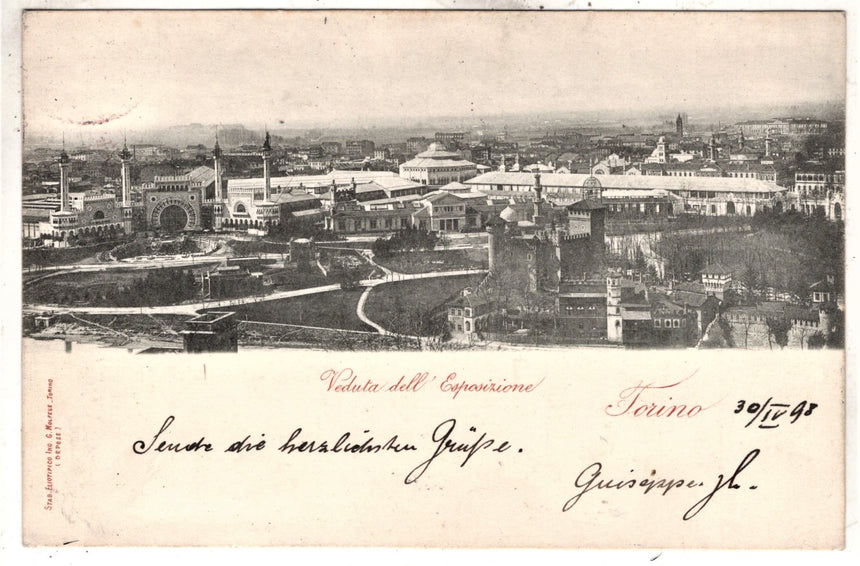 Veduta dell' Esposizione
Torino 30/IV 98
Sende die herzlichsten Grüße.
Guiseppe
STAB. ELIOTIPICO ING. G. MOLFESE_TORINO
(DEPOSE)